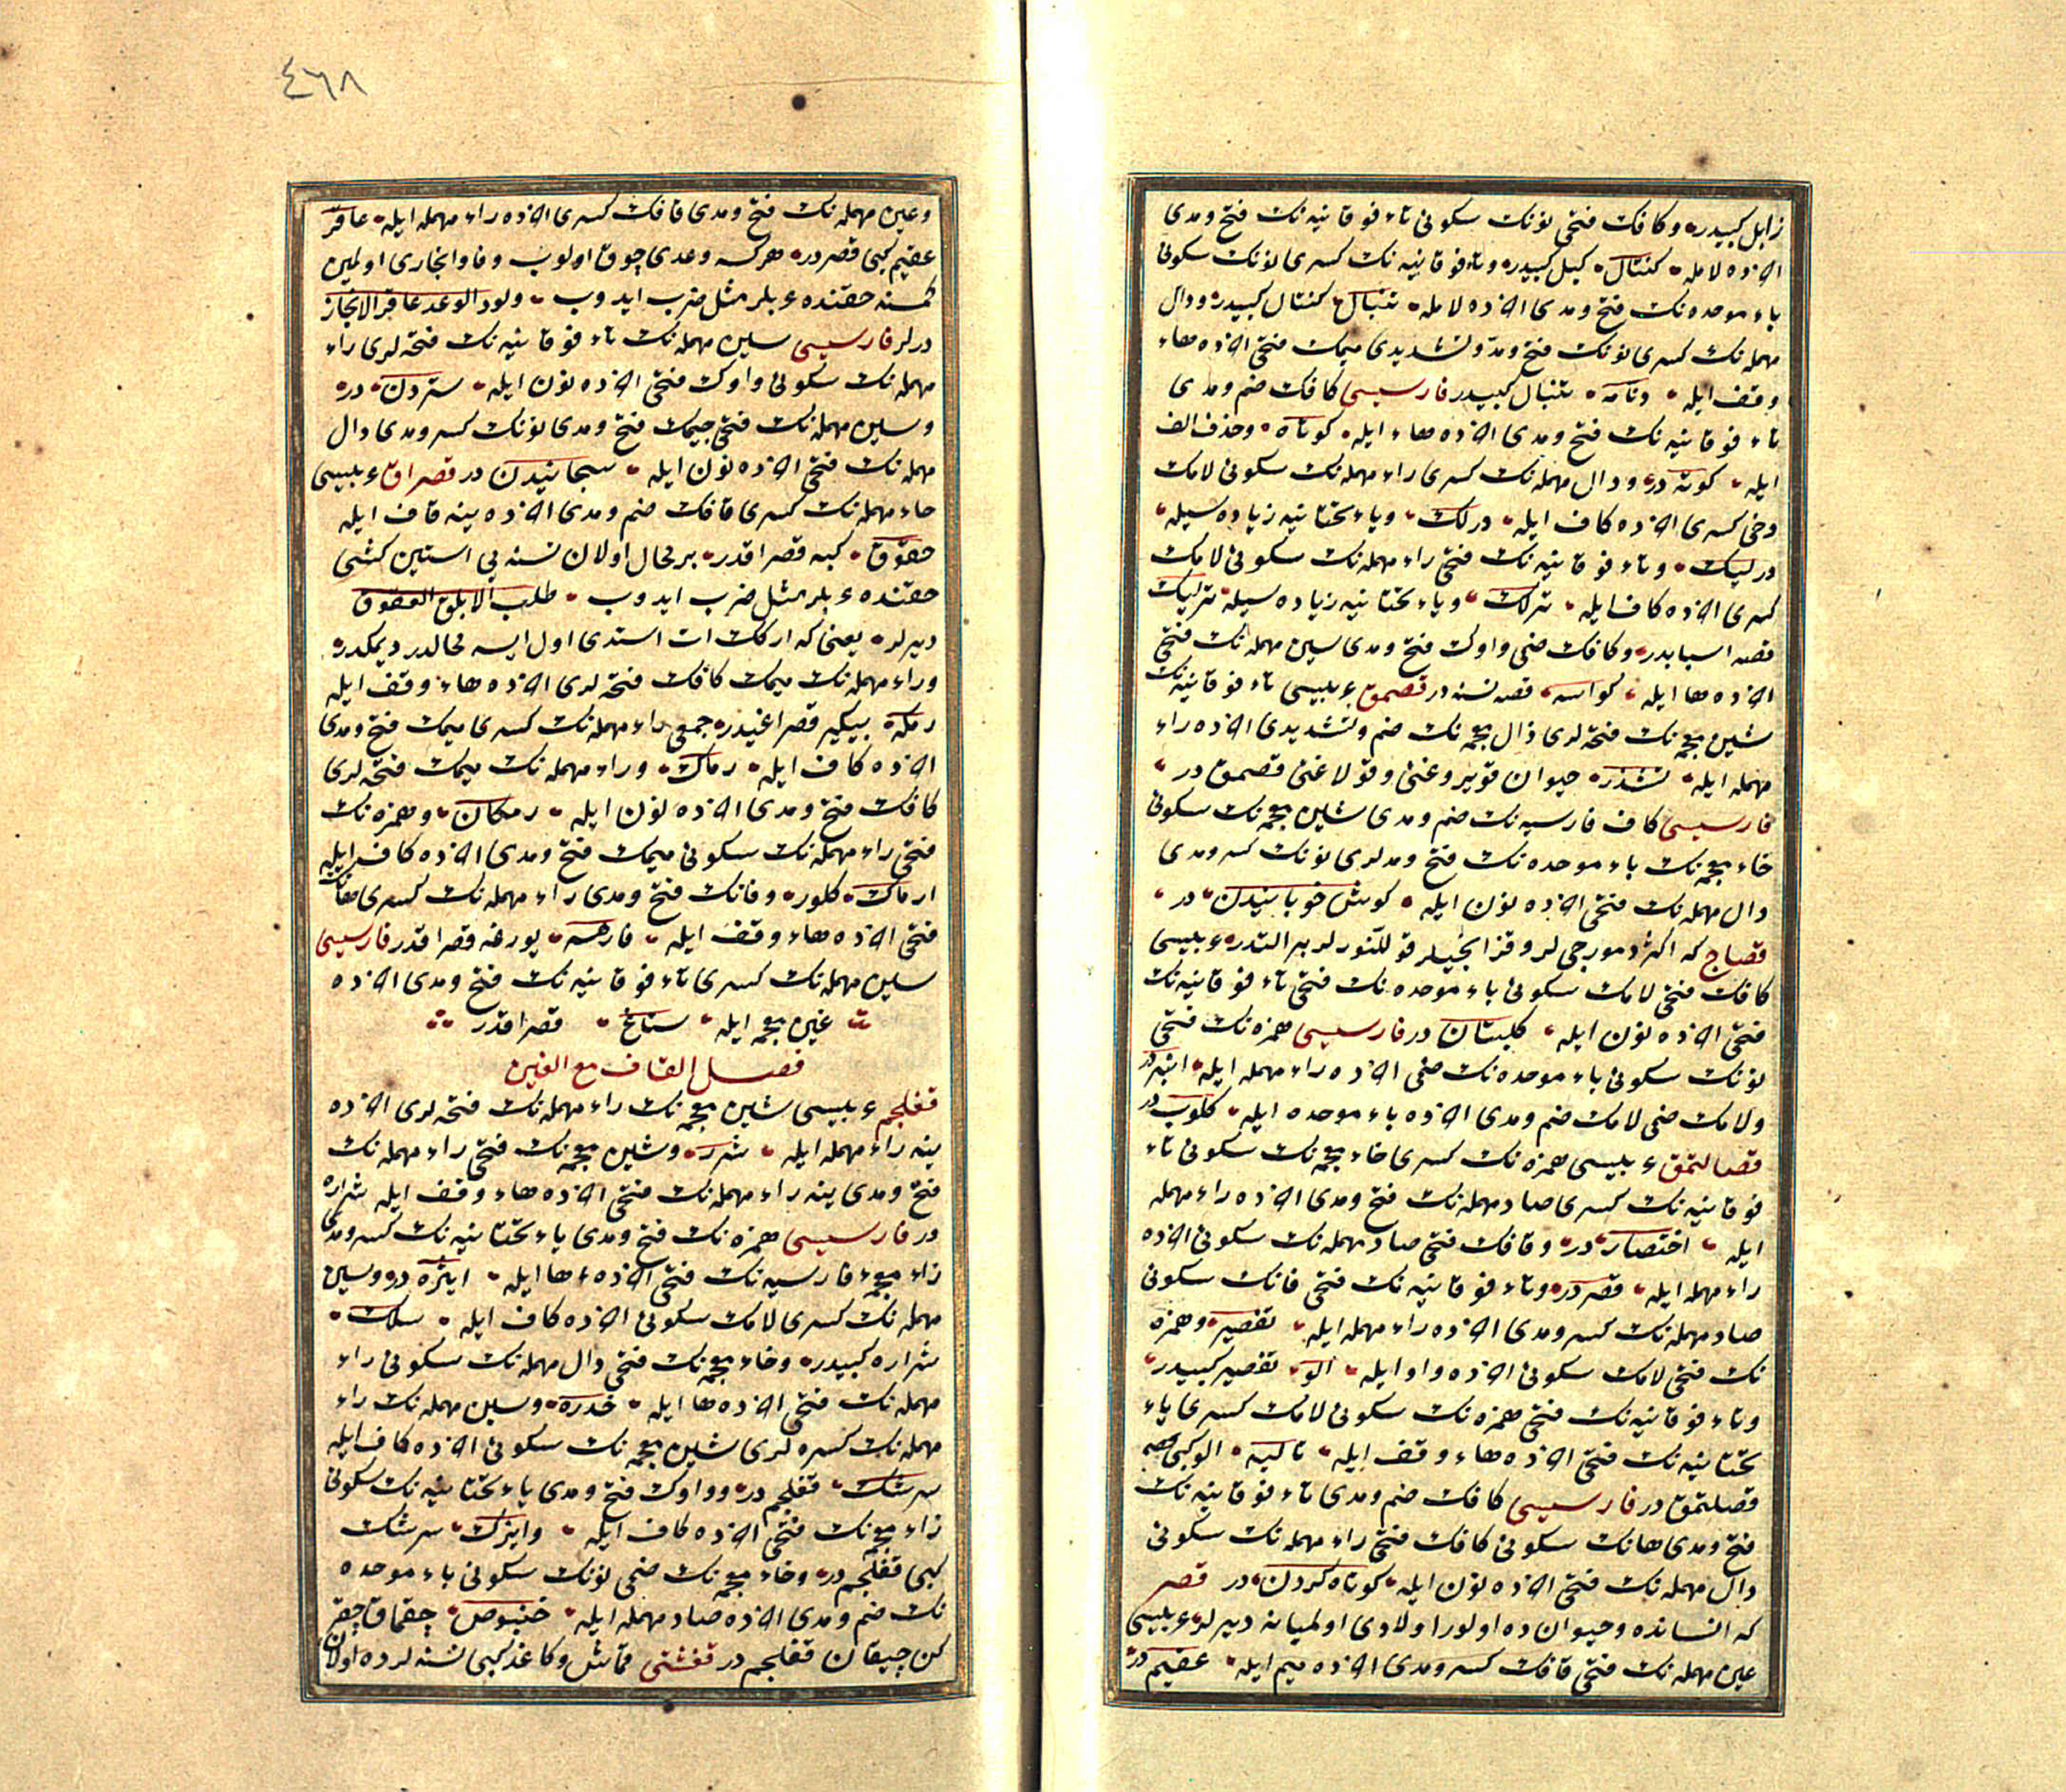 زابل كبيدر وكافك فتحى نونك سكونى تاء فوقانيه نك فتح ومدى
اخرده لامله كنتال كبل كبيدر وتاء فوقانيه نك كسرى نونك سكونى
باء موحده نك فتح ومدى اخرده لامله تنبال كنتال كبيدر ودال
مهمله نك كسرى نونك فتح ومد وتشديدى ميمك فتحى اخرده هاء
وقف ايله دنامه تنبال كبيدر فارسيسى كافك ضم ومدى
تاء فوقانيه نك فتح ومدى اخرده هاء ايله كوتاه وحذف الف
ايله كوته در ودال مهمله نك كسرى راء مهمله نك سكونى لامك
دخى كسرى اخرده كاف ايله درلك وياء تحتانيه زياده سيله
درليك وتاء فوقانيه نك فتحى راء مهمله نك سكونى لامك
كسرى اخرده كاف ايله ترلك وياء تحتانيه زياده سيله ترليك
قصه اسبابدر وكافك ضمى واوك فتح ومدى سين مهمله نك فتحى
اخرده ها ايله كواسه قصه نسنه در قصمق عربيسى تاء فوقانيه نك
شين معجمه نك فتحه لرى ذال معجمه نك ضم وتشديدى اخرده راء
مهمله ايله تشذر حيوان قويروغنى وقولاغنى قصمق در
فارسيسى كاف فارسيه نك ضم ومدى شين معجمه نك سكونى
خاء معجمه نك باء موحده نك فتح ومدلرى نونك كسر ومدى
دال مهمله نك فتحى اخرده نون ايله كوش خوبانيدن در
قصاج كه اكثر دمورجى لر وقزانجيلر قوللنورلر بر التدر عربيسى
كافك فتحى لامك سكونى باء موحده نك فتحى تاء فوقانيه نك
فتحى اخرده نون ايله كلبتان در فارسيسى همزه نك فتحى
نونك سكونى باء موحده نك ضمى اخرده راء مهمله ايله انبر در
ولامك ضمى لامك ضم ومدى اخرده باء موحده ايله كلوب در
قصالتمق عربيسى همزه نك كسرى خاء معجمه نك سكونى تاء
فوقانيه نك كسرى صاد مهمله نك فتح ومدى اخرده راء مهمله
ايله اختصار در وقافك فتحى صاد مهمله نك سكونى اخرده
راء مهمله ايله قصر در وتاء فوقانيه نك فتحى قافك سكونى
صاد مهمله نك كسر ومدى اخرده راء مهمله ايله تقصير وهمزه
نك فتحى لامك سكونى اخرده واو ايله الو تقصير كبيدر
وتاء فوقانيه نك فتحى همزه نك سكونى لامك كسرى ياء
تحتانيه نك فتحى اخرده هاء وقف ايله تاليه الو كبى
قصلتمق در فارسيسى كافك ضم ومدى تاء فوقانيه نك
فتح ومدى هانك سكونى كافك فتحى راء مهمله نك سكونى
دال مهمله نك فتحى اخرده نون ايله كوتاه كردن در قصر
كه انسانده وحيوانده اولور اولادى اولميانه ديرلر عربيسى
عين مهمله نك فتحى قافك كسر ومدى اخرده ميم ايله عقيم در
٤٦٨
وعين مهمله نك فتح ومدى قافك كسرى اخرده راء مهمله ايله عاقر
عقيم كبى قصر در هركه وعدى چوق اولوب وفا وانجازى اولمين
كمسنه حقنده عربلر مثل ضرب ايدوب ولود الوعد عاقر الانجاز
ديرلر فارسيسى سين مهمله نك تاء فوقانيه نك فتحه لرى راء
مهمله نك سكونى واوك فتحى اخرده نون ايله ستردن در
وسين مهمله نك فتحى جيمك فتح ومدى نونك كسر ومدى دال
مهمله نك فتحى اخرده نون ايله سجانيدن در قصراق عربيسى
حاء مهمله نك كسرى قافك ضم ومدى اخرده ينه قاف ايله
حقوق كبه قصراقدر بر محال اولان نسنه يى استين كشى
حقنده عربلر مثل ضرب ايدوب طلب الابلق العقوق
ديرلر يعنى كه اركك ات استدى اول ايسه محالدر ديمكدر
وراء مهمله نك ميمك كافك فتحه لرى اخرده هاء وقف ايله
رمكه بيكير قصراغيدر جمعى راء مهمله نك كسرى ميمك فتح ومدى
اخرده كاف ايله رماك وراء مهمله نك ميمك فتحه لرى
كافك فتح ومدى اخرده نون ايله رمكان وهمزه نك
فتحى راء مهمله نك سكونى ميمك فتح ومدى اخرده كاف ايله
ارماك كلور وفانك فتح ومدى راء مهمله نك كسرى هانك
فتحى اخرده هاء وقف ايله فارهه يورغه قصراقدر فارسيسى
سين مهمله نك كسرى تاء فوقانيه نك فتح ومدى اخرده
غين معجمه ايله ستاغ قصراقدر
فصل القاف مع الغين
قغلجم عربيسى شين معجمه نك راء مهمله نك فتحه لرى اخرده
ينه راء مهمله ايله شرر وشين معجمه نك فتحى راء مهمله نك
فتح ومدى ينه راء مهمله نك فتحى اخرده هاء وقف ايله شراره
در فارسيسى همزه نك فتح ومدى ياء تحتانيه نك كسر ومدى
زاء معجمهء فارسيه نك فتحى اخرده ها ايله اييژه در وسين
مهمله نك كسرى لامك سكونى اخرده كاف ايله سلك
شراره كبيدر وخاء معجمه نك فتحى دال مهمله نك سكونى راء
مهمله نك فتحى اخرده ها ايله خدره وسين مهمله نك راء
مهمله نك كسره لرى شين معجمه نك سكونى اخرده كاف ايله
سرشك قغلجم در وواوك فتح ومدى ياء تحتانيه نك سكونى
زاء معجمه نك فتحى اخرده كاف ايله وايزك سرشك
كبى قغلجم در وخاء معجمه نك ضمى نونك سكونى باء موحده
نك ضم ومدى اخرده صاد مهمله ايله خنبوص چقماق چقر
كن چيقان قغلجم در قغشتى قماش وكاغد كبى نسنه لرده اولان